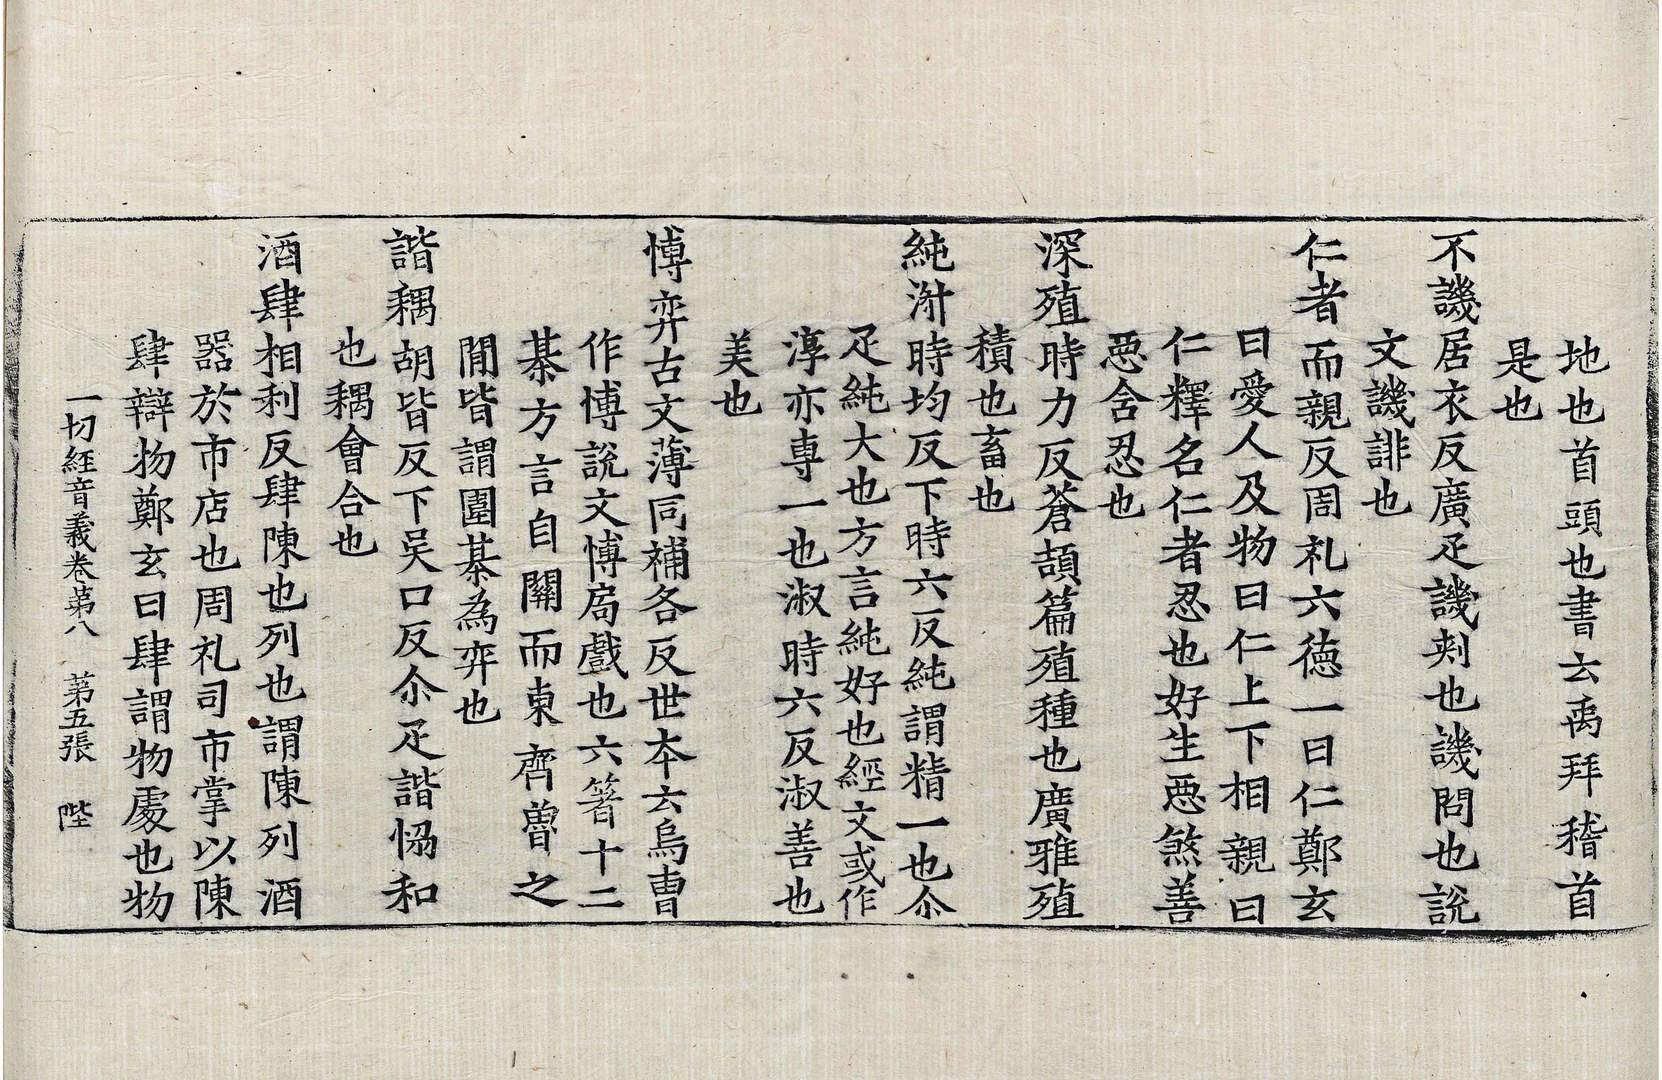 地也首頭也書云禹拜稽首
是也
不譏居衣反廣疋譏刾也譏問也説
文譏誹也
仁者而親反周礼六徳一曰仁鄭玄
曰愛人及物曰仁上下相親曰
仁釋名仁者忍也好生惡煞善
惡含忍也
深殖時力反蒼頡篇殖種也廣雅殖
積也畜也
純淑時均反下時六反純謂精一也尒
疋純大也方言純好也經文或作
淳亦専一也淑時六反淑善也
美也
博弈古文薄同補各反世本云烏曺
作博説文博局戲也六箸十二
棊方言自關而東齊魯之
閒皆謂圍棊為弈也
諧耦胡皆反下吴口反尒疋諧恊和
也耦會合也
酒肆相利反肆陳也列也謂陳列酒
器於市店也周礼司市掌以陳
肆辯物鄭玄曰肆謂物處也物
一切經音義卷苐八 苐五張 陛